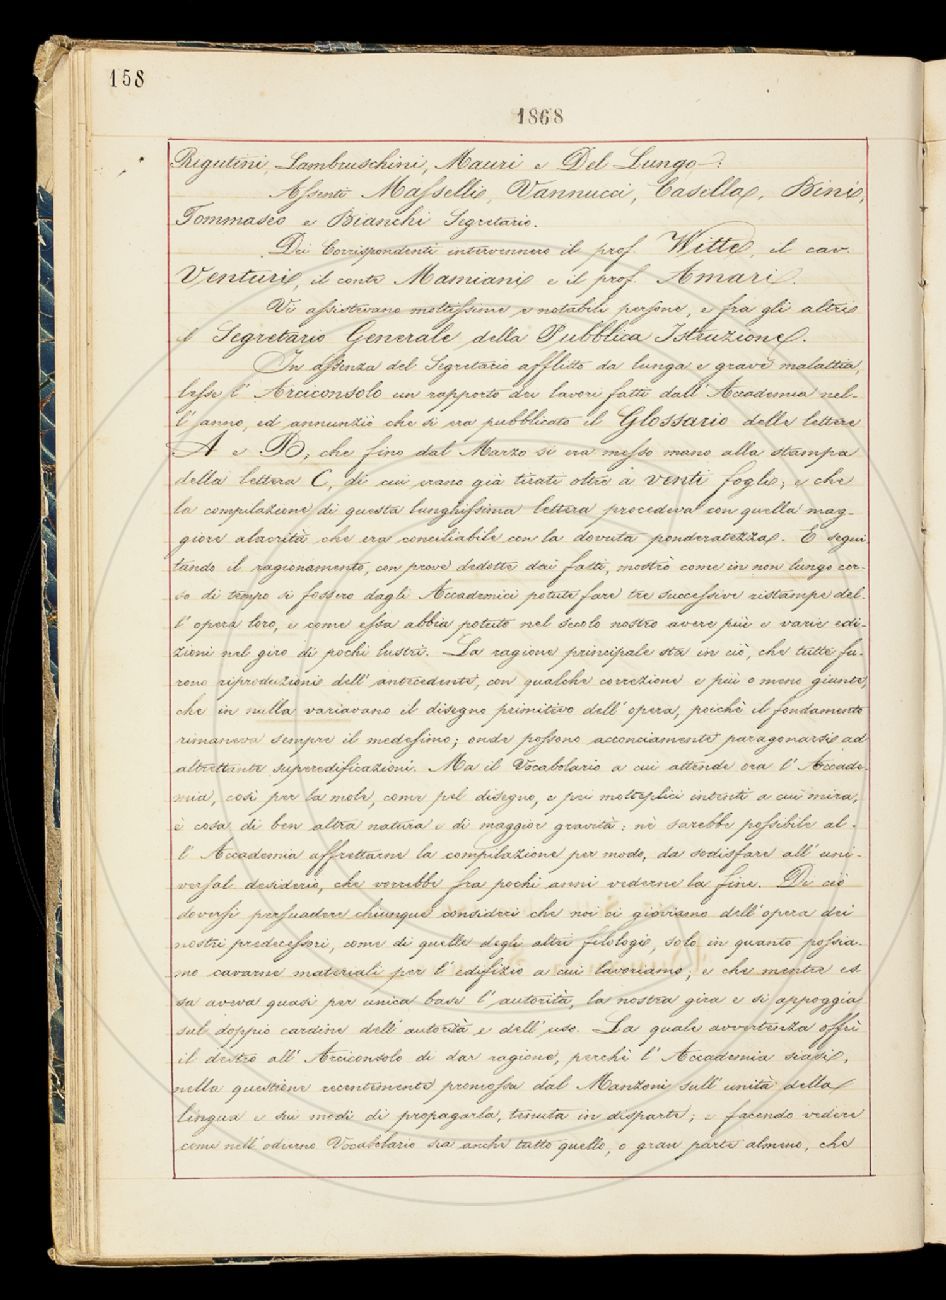 158
1868
Rigutini, Lambruschini, Mauri e Del Lungo.
Assenti Masselli, Vannucci, Casella, Bini,
Tommaseo e Bianchi Segretario.
Dei Corrispondenti intervennero il prof. Witte, il cav.
Venturi, il conte Mamiani e il prof. Amari.
Vi assistevano moltissime e notabili persone, e fra gli altri
il Segretario Generale della Pubblica Istruzione.
In assenza del Segretario afflitto da lunga e grave malattia,
lesse l'Arciconsolo un rapporto dei lavori fatti dall'Accademia nel-
l'anno, ed annunziò che si era pubblicato il Glossario delle lettere
A e B; che fino dal Marzo si era messo mano alla stampa
della lettera C, di cui erano già tirati oltre a venti fogli; e che
la compilazione di questa lunghissima lettera procedeva con quella mag-
giore alacrità che era conciliabile con la dovuta ponderatezza. E segui-
tando il ragionamento, con prove dedotte dai fatti, mostrò come in non lungo cor-
so di tempo si fossero dagli Accademici potute fare tre successive ristampe del-
l'opera loro, e come essa abbia potuto nel secolo nostro avere più e varie edi-
zioni nel giro di pochi lustri. La ragione principale sta in ciò, che tutte fu-
rono riproduzioni dell'antecedente, con qualche correzione e più o meno giunte,
che in nulla variavano il disegno primitivo dell'opera, poichè il fondamento
rimaneva sempre il medesimo; onde possono acconciamente paragonarsi ad
altrettante superedificazioni. Ma il Vocabolario a cui attende ora l'Accade-
mia, così per la mole, come pel disegno, e pei molteplici intenti a cui mira,
è cosa di ben altra natura e di maggior gravità: nè sarebbe possibile al-
l'Accademia affrettarne la compilazione per modo, da sodisfare all'uni-
versal desiderio, che vorrebbe fra pochi anni vederne la fine. Di ciò
doversi persuadere chiunque consideri che noi ci gioviamo dell'opera dei
nostri predecessori, come di quelle degli altri filologi, solo in quanto possia-
mo cavarne materiali per l'edifizio a cui lavoriamo, e che mentre es-
sa aveva quasi per unica base l'autorità, la nostra gira e si appoggia
sul doppio cardine dell'autorità e dell'uso. La quale avvertenza offrì
il destro all'Arciconsolo di dar ragione, perchè l'Accademia siasi,
nella questione recentemente promossa dal Manzoni sull'unità della
lingua e sui modi di propagarla, tenuta in disparte; e facendo vedere
come nell'odierno Vocabolario sia anche tutto quello, o gran parte almeno, che